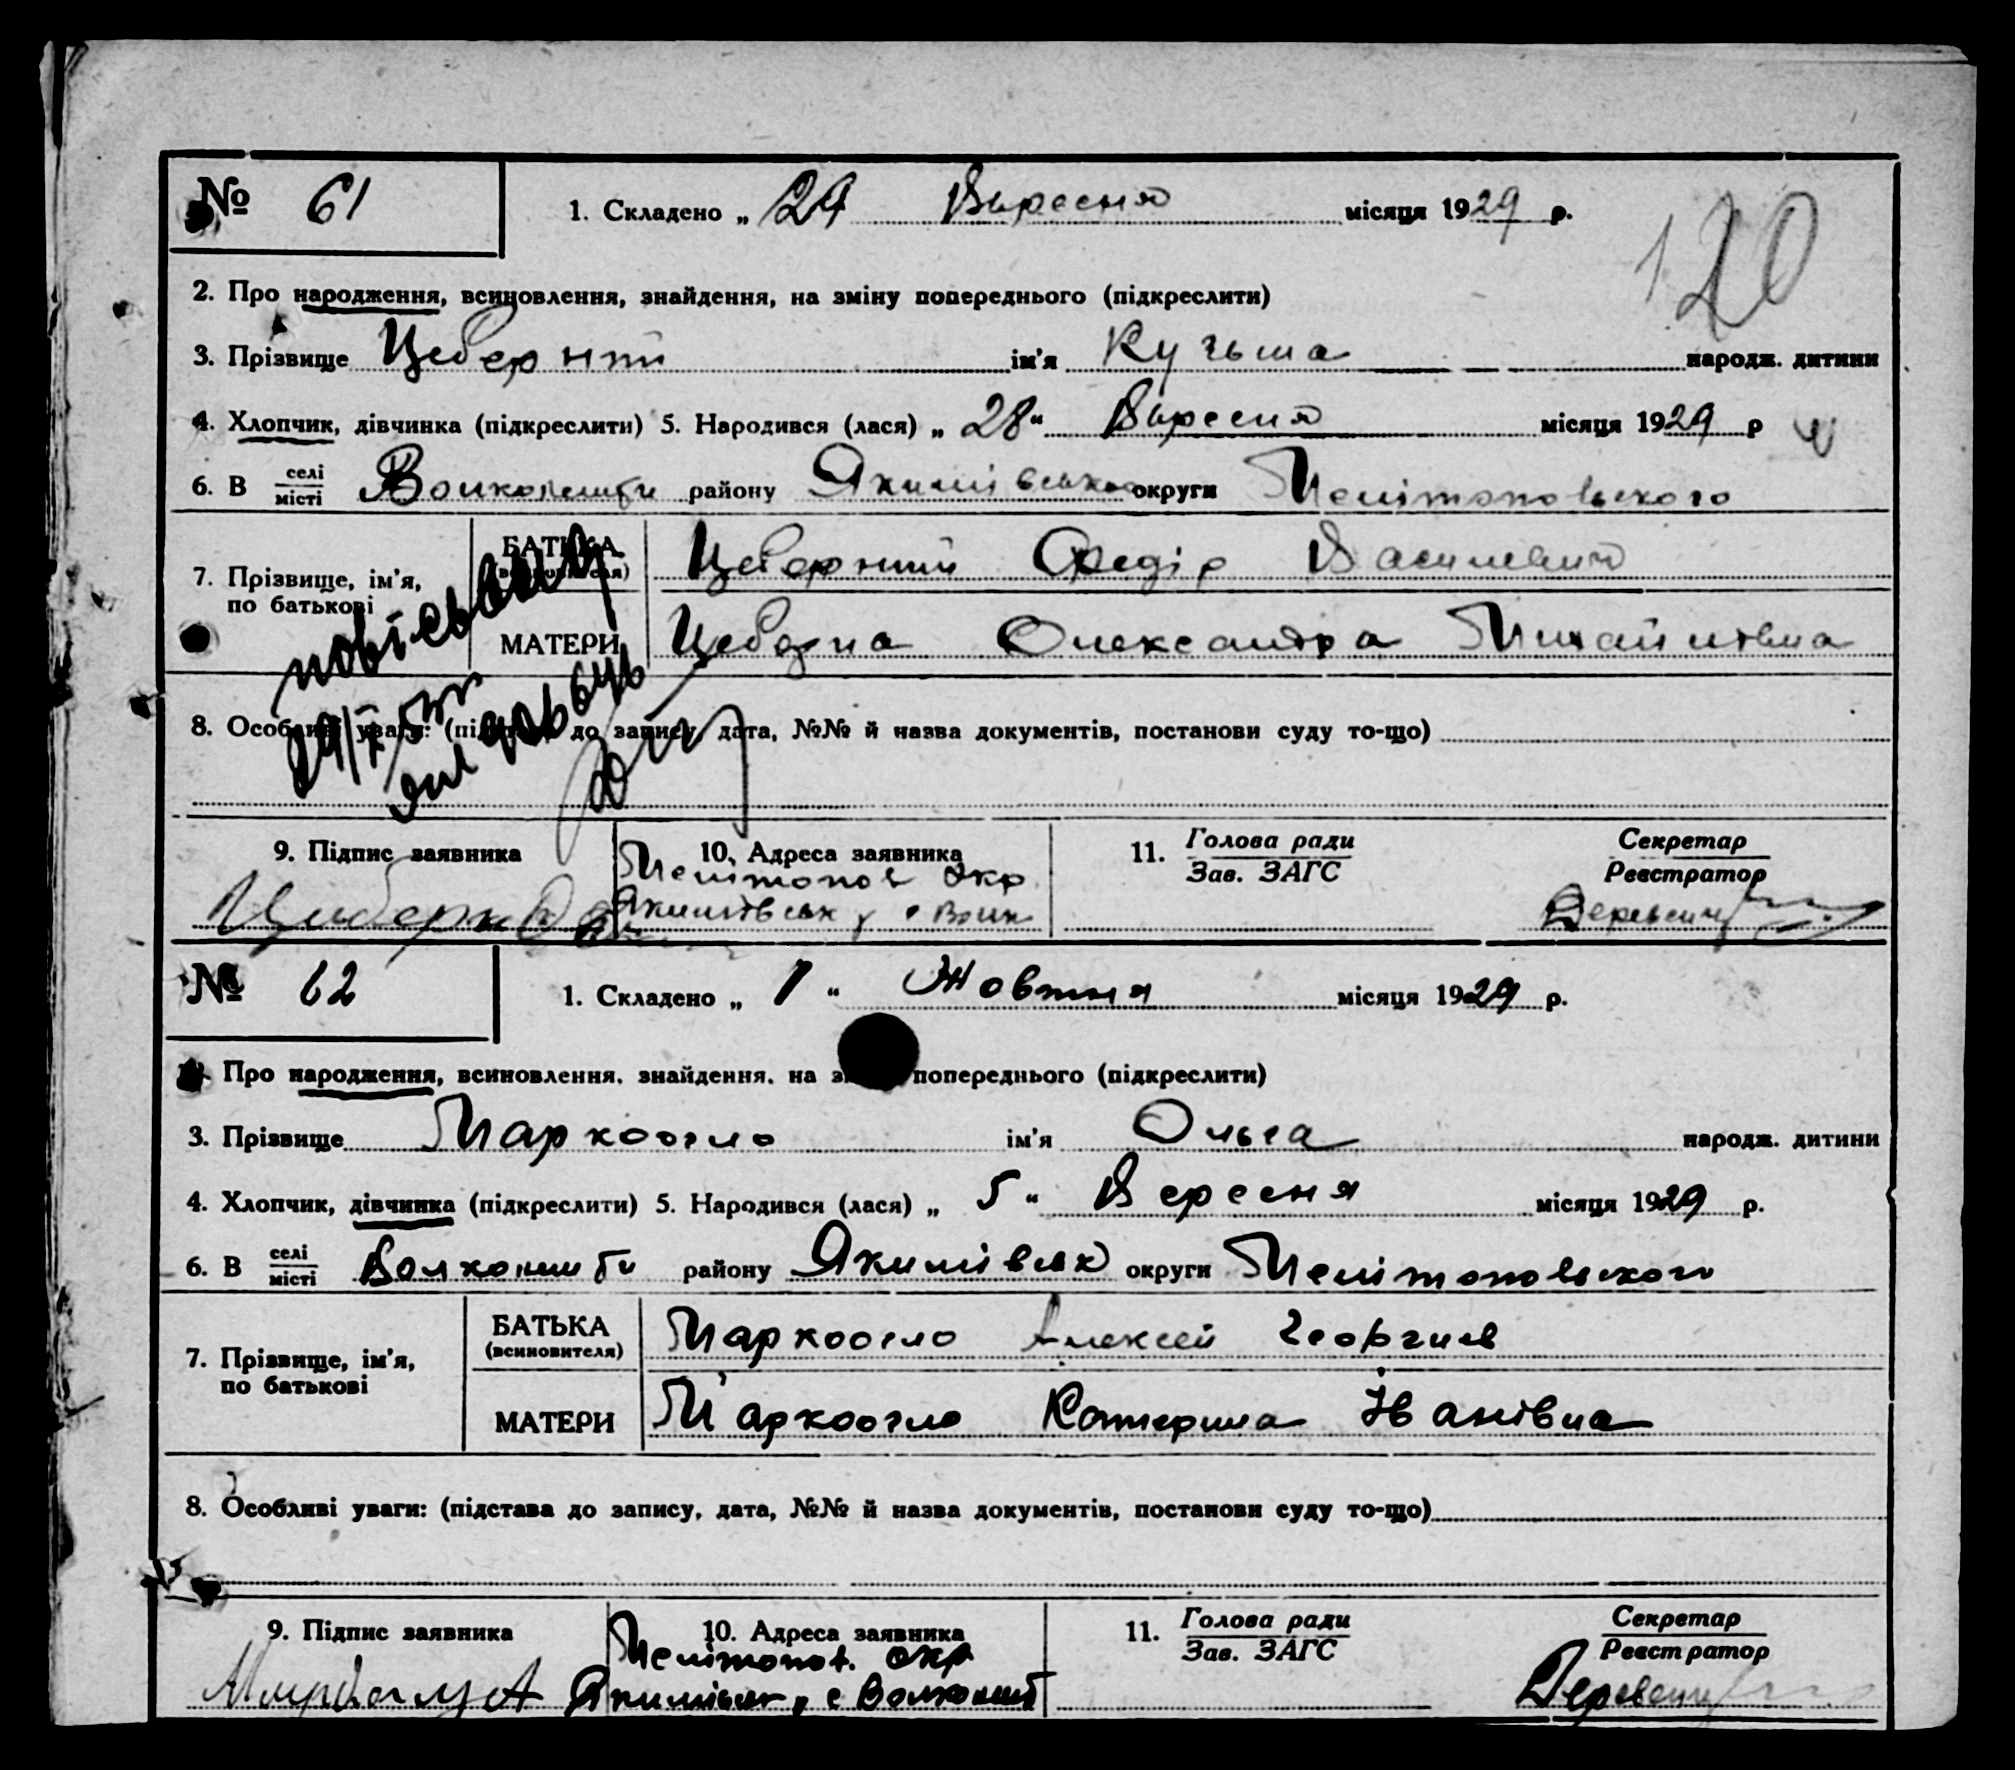 № 61 1. Складено „ 29 Вересня місяця 1929 р.
120
2. Про народження, всиновлення, знайдення, на зміну попереднього (підкреслити)
3. Прізвище Цеберний ім'я Кузьма народж. дитини
4. Хлопчик, дівчинка (підкреслити) 5. Народився (лася) „ 28 “ Вересня місяця 1929 р
6. В селі місті району Якимівськ округи Мелітопольского
7. Прізвище, ім'я, по батькові
БАТЬКА Цеберний Федір Василевич
МАТЕРИ Цеберна Олександра Михайлівна
8. Особливі уваги: (підстава до запису, дата, №№ й назва документів, постанови суду то-що)
9. Підпис заявника 10. Адреса заявника 11. Голова ради Секретар
Зав. ЗАГС Реєстратор
Мелітопол Окр
Якимівськ
№ 62 1. Складено „ 1 “ Жовтня місяця 1929 р.
Про народження, всиновлення, знайдення, на попереднього (підкреслити)
3. Прізвище Маркоогло ім'я Ольга народж. дитини
4. Хлопчик, дівчинка (підкреслити) 5. Народився (лася) „ 5 “ Вересня місяця 1929 р.
6. В селі місті району Якимівськ округи Мелітопольского
7. Прізвище, ім'я, по батькові
БАТЬКА (всиновителя) Маркоогло Алексей Георгиев
МАТЕРИ Маркоогло Катерина Іванівна
8. Особливі уваги: (підстава до запису, дата, №№ й назва документів, постанови суду то-що)
9. Підпис заявника 10. Адреса заявника 11. Голова ради Секретар
Зав. ЗАГС Реєстратор
Мелітопол. окр
Якимівськ